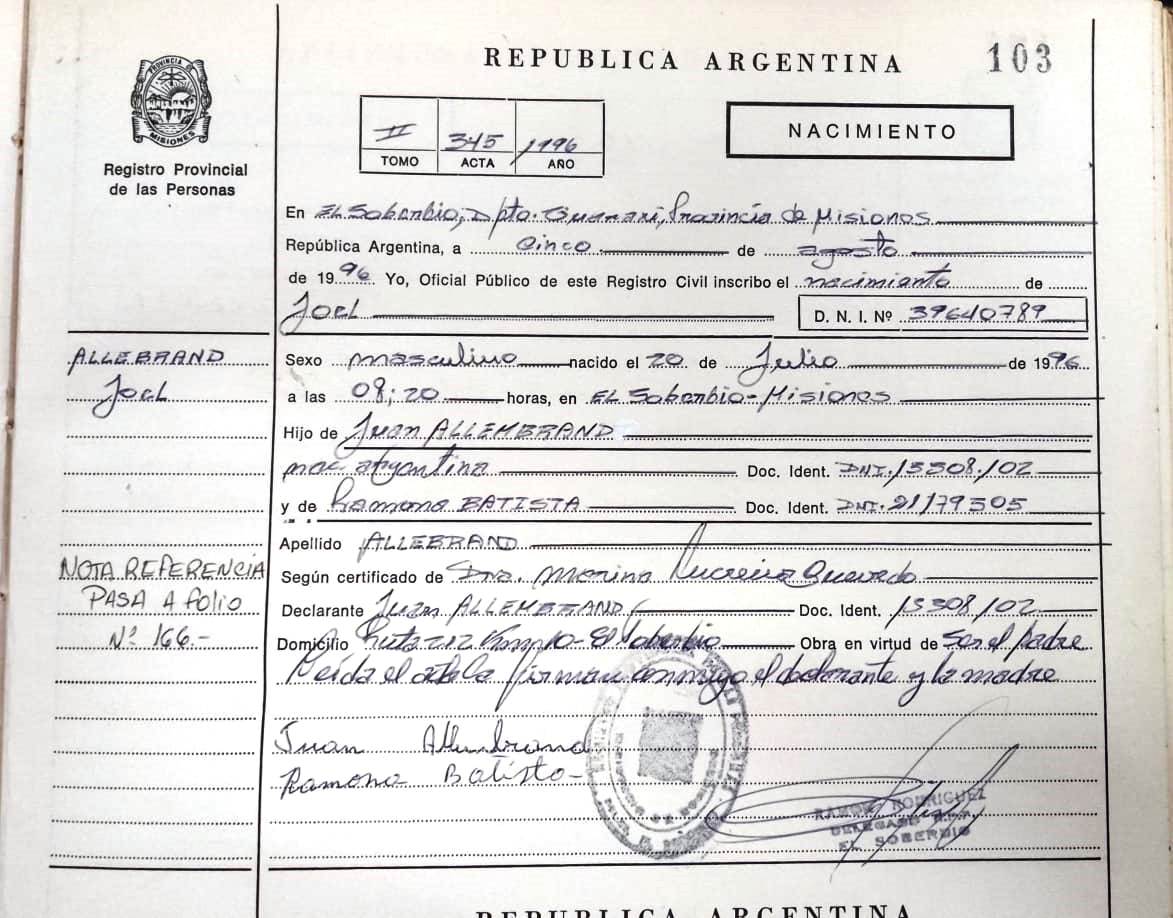 REPUBLICA ARGENTINA
103
PROVINCIA DE
MISIONES
Registro Provincial
de las Personas
II 345 1996
TOMO ACTA AÑO
NACIMIENTO
En El Soberbio, Dpto. Guarani, Provincia de Misiones
República Argentina, a cinco de agosto
de 1996 Yo, Oficial Público de este Registro Civil inscribo el nacimiento de
Joel D. N. I. Nº 39640789
ALLEBRAND
Joel
Sexo masculino nacido el 20 de Julio de 1996
a las 08:20 horas, en El Soberbio - Misiones
Hijo de Juan ALLEMBRAND
nac. argentina Doc. Ident. DNI.
y de Ramona BATISTA Doc. Ident. DNI. 21179305
Apellido ALLEBRAND
NOTA REFERENCIA
PASA A folio
Nº 166.-
Según certificado de Dra. Quevedo
Declarante Juan ALLEMBRAND Doc. Ident.
Domicilio Ruta - El Soberbio Obra en virtud de Ser el padre
Leída el acta la firman conmigo el declarante y la madre
Juan Allembrand
Ramona Batista
RAMON RODRIGUEZ
DELEGADO
EL SOBERBIO
REPUBLICA ARGENTINA